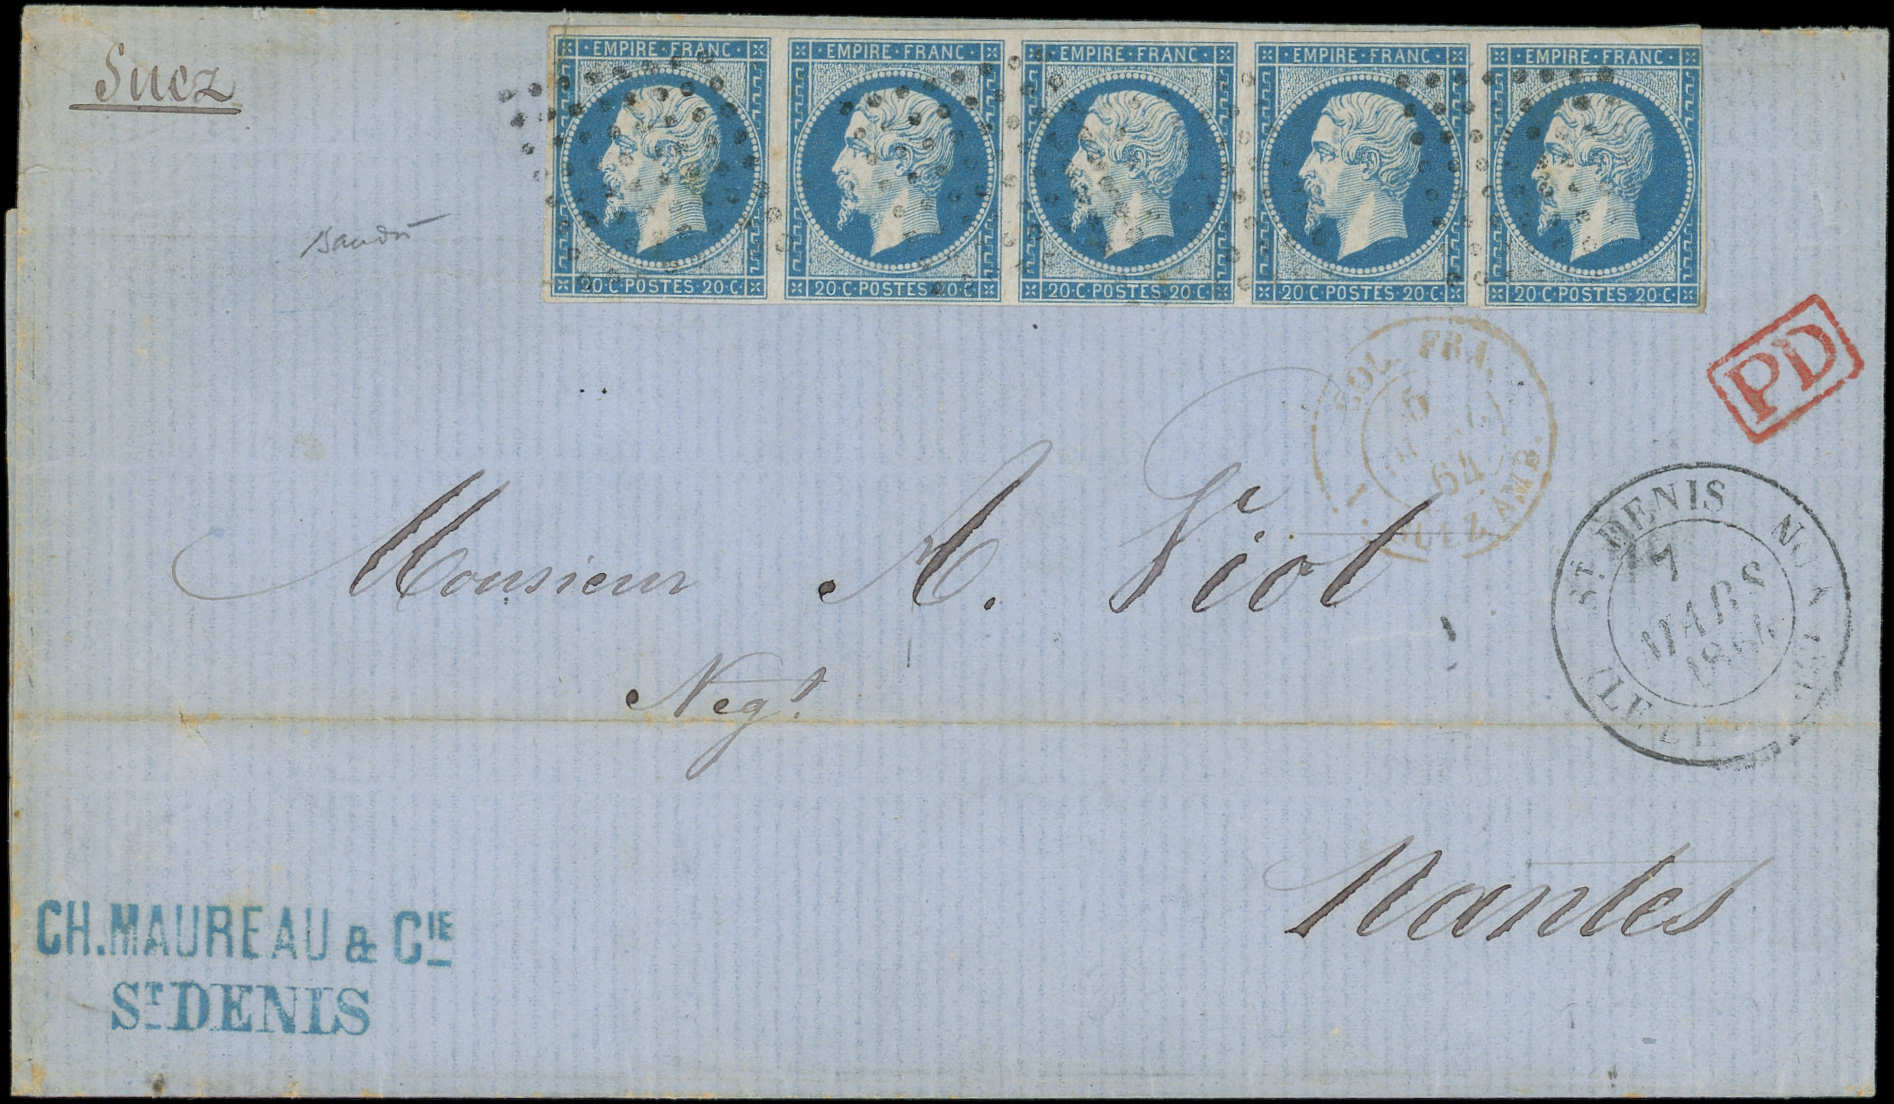 Suez
EMPIRE·FRANC· EMPIRE·FRANC· EMPIRE·FRANC· EMPIRE·FRANC· EMPIRE·FRANC·
20·C·POSTES·20·C· 20·C·POSTES·20·C· 20·C·POSTES·20·C· 20·C·POSTES·20·C· 20·C·POSTES·20·C·
PD
COL. FRA.
64
SUEZ AMB.
ST. DENIS
7
MARS
1864
ILE DE LA
Monsieur A. Viol
Negt.
Nantes
CH. MAUREAU & CIE
ST DENIS